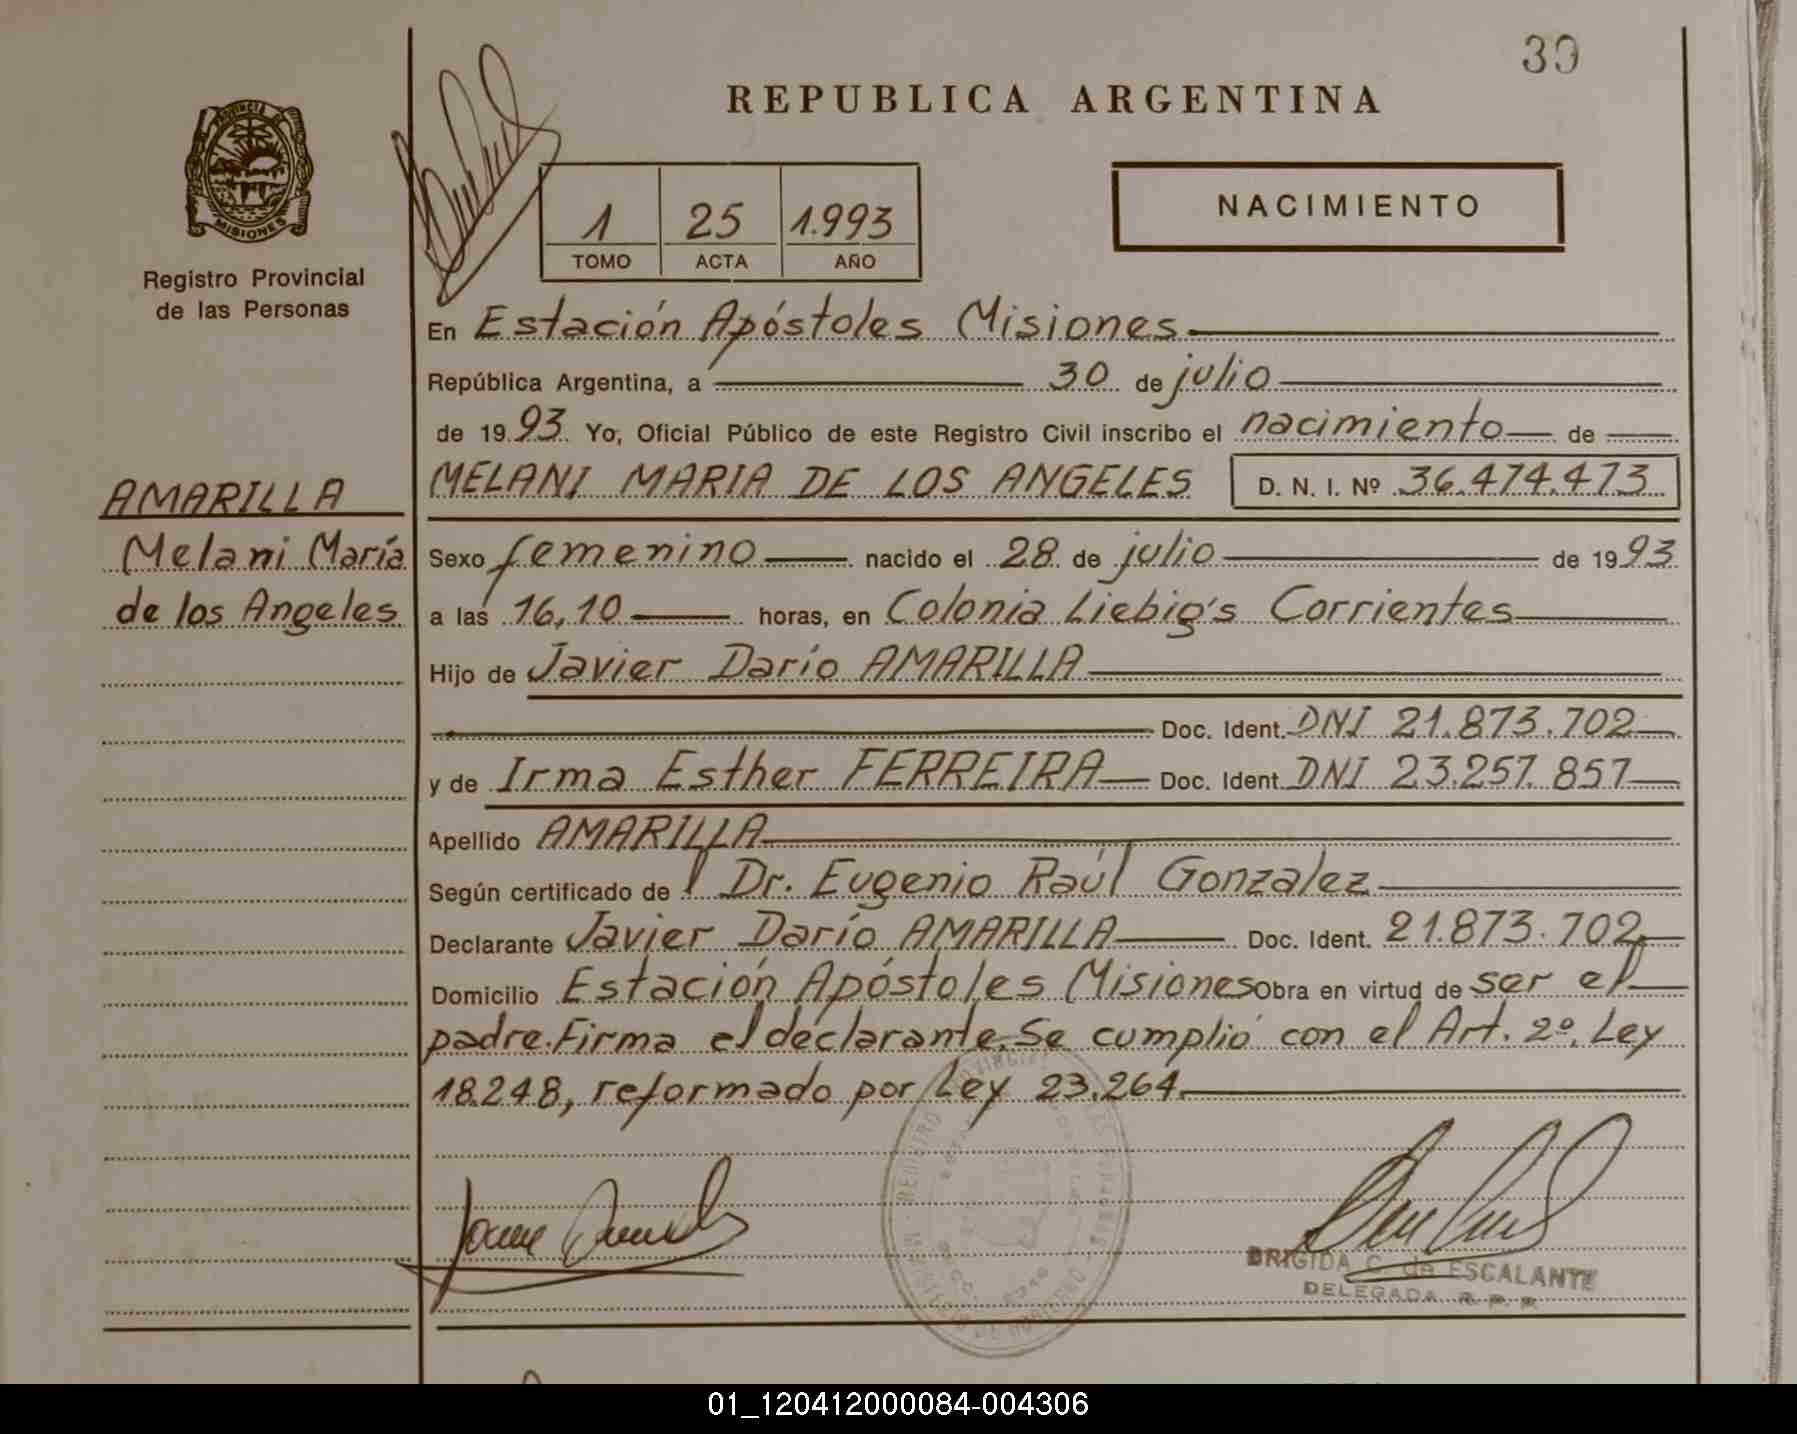 39
REPUBLICA ARGENTINA
PROVINCIA DE
MISIONES
Registro Provincial
de las Personas
1 25 1.993
TOMO ACTA AÑO
NACIMIENTO
En Estación Apóstoles Misiones
República Argentina, a 30 de julio
de 1993 Yo, Oficial Público de este Registro Civil inscribo el nacimiento de
AMARILLA
Melani María
de los Angeles
MELANI MARIA DE LOS ANGELES D. N. I. Nº 36.474.473
Sexo femenino nacido el 28 de julio de 1993
a las 16,10 horas, en Colonia Liebig's Corrientes
Hijo de Javier Darío AMARILLA
Doc. Ident. DNI 21.873.702
y de Irma Esther FERREIRA Doc. Ident. DNI 23.257.857
Apellido AMARILLA
Según certificado de Dr. Eugenio Raúl Gonzalez
Declarante Javier Darío AMARILLA Doc. Ident. 21.873.702
Domicilio Estación Apóstoles Misiones Obra en virtud de ser el
padre. Firma el declarante. Se cumplió con el Art. 2º, Ley
18.248, reformado por Ley 23.264.
BRIGIDA C. de ESCALANTE
DELEGADA R. P. P.
01_120412000084-004306